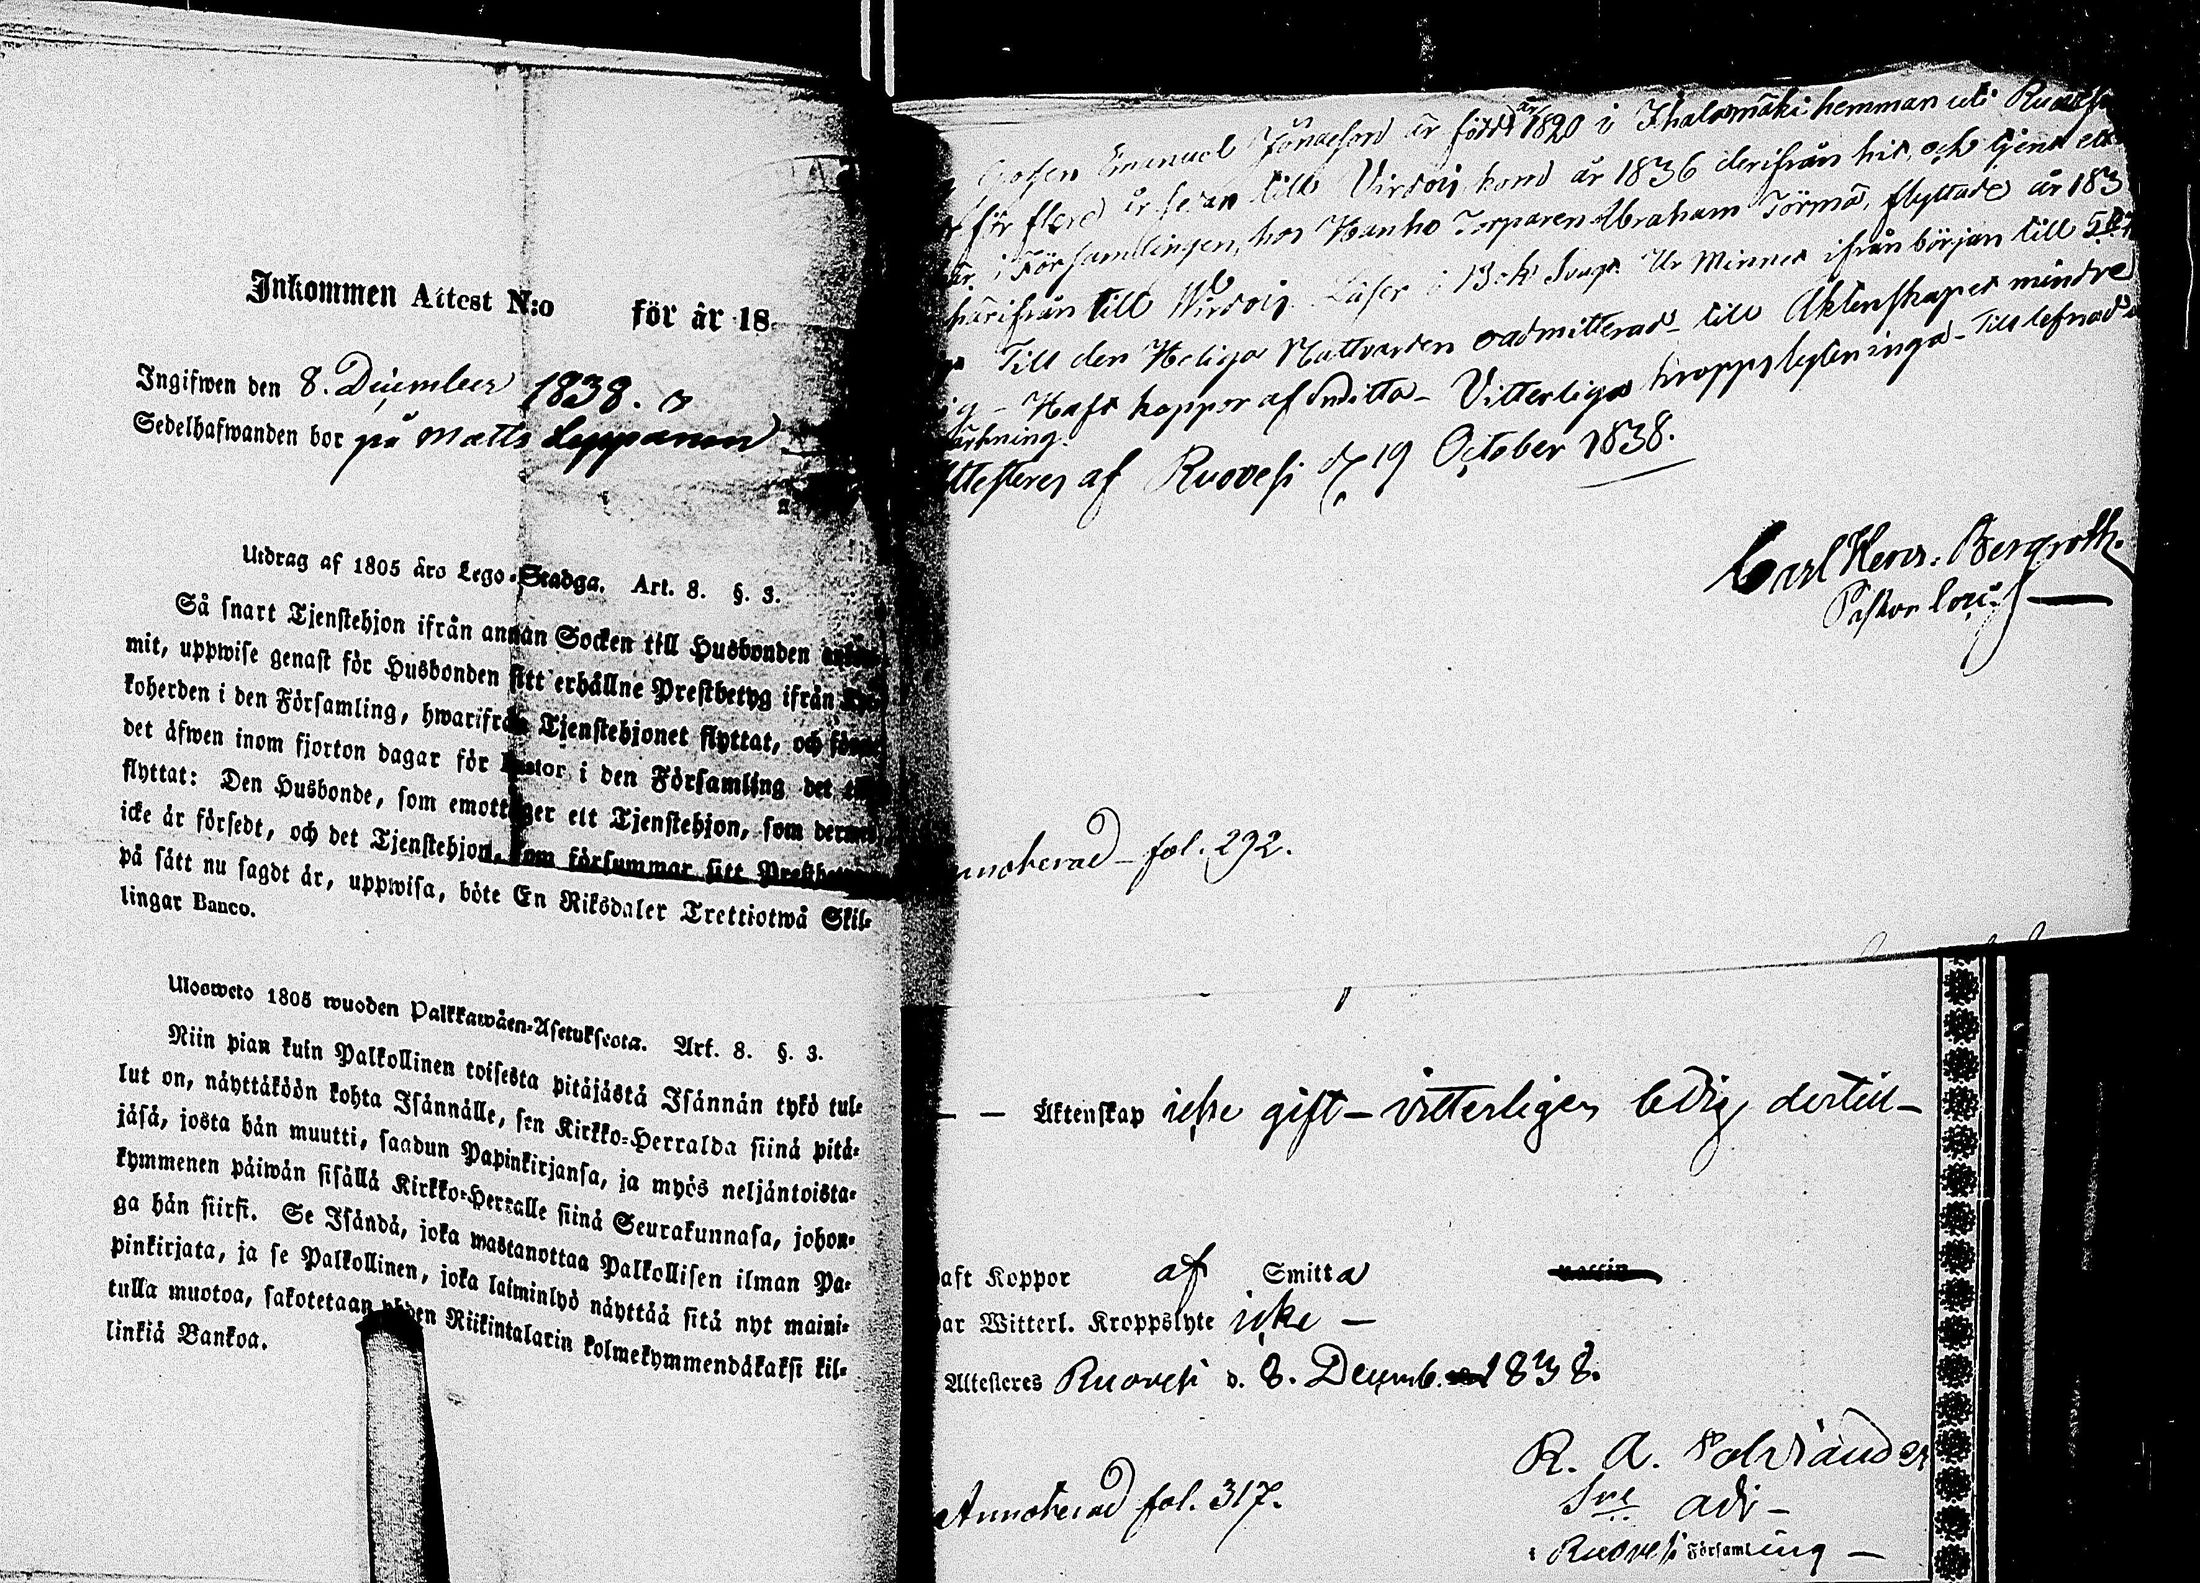 Inkommen Attest N:o för år 18
Ingifwen den 8. December 1838.
Sedelhafwanden bor på Matts Leppänen
Utdrag af 1805 åro Lego-Stadga. Art. 8. §. 3.
Så snart Tjenstehjon ifrån annan Socken till Husbonden
mit, uppwise genast för Husbonden sitt erhållne Prestbetyg ifrån
koherden i den Församling, hwarifrån Tjenstehjonet flyttat, och
det äfwen inom fjorton dagar för Pastor i den Församling det
flyttat: Den Husbonde, som emottager ett Tjenstehjon, som
icke är försedt, och det Tjenstehjon, som försummar sitt
på sätt nu sagdt är, uppwisa, böte En Riksdaler Trettiotwå Skil-
lingar Banco.
Uloswето 1805 wuoden Palkkawäen-Asetuksesta. Art. 8. §. 3.
Niin pian kuin Palkollinen toisesta pitäjästä Isännän tykö tul-
lut on, näyttäköön kohta Isännälle, sen Kirkko-Herralda siinä pitä-
jäsä, josta hän muutti, saadun Papinkirjansa, ja myös neljäntoista-
kymmenen päiwän sisällä Kirkko-Herralle siinä Seurakunnasa, johon-
ga hän siirsi. Se Isändä, joka wastanottaa Palkollisen ilman Pa-
pinkirjata, ja se Palkollinen, joka laiminlyö näyttää sitä nyt maini-
tulla muotoa, sakotetaan yhden Riikintalarin kolmekymmendäkaksi kil-
linkiä Bankoa.
Emanuel är född år 1820 i Ihalasmäki hemman uti
för flere år sedan till Virdois kom år 1836 derifrån hit, och tjent
i Församlingen, hos Hanho Torparen Abraham Törmä, flyttade år 183
härifrån till Wirdois Läser i Bok Svagt Ur Minnet ifrån början till
Till den Heliga Nattvarden oadmitterad – till Äktenskapet mindre
Haft koppor af Smitta – Vitterliga kroppslyten inga – Till lefnad
märkning.
Attesteres af Ruovesi d. 19 October 1838.
Carl Henr. Bergroth.
Pastor
fol. 292.
Äktenskap icke gift – vitterligen ledig dertill –
aft Koppor af Smitta
ar Witterl. Kroppslyte icke –
Attesteres Ruovesi d. 8. Decemb. 1838.
R. A.
adj –
i Ruovesi Församling –
Annoterad fol. 317.